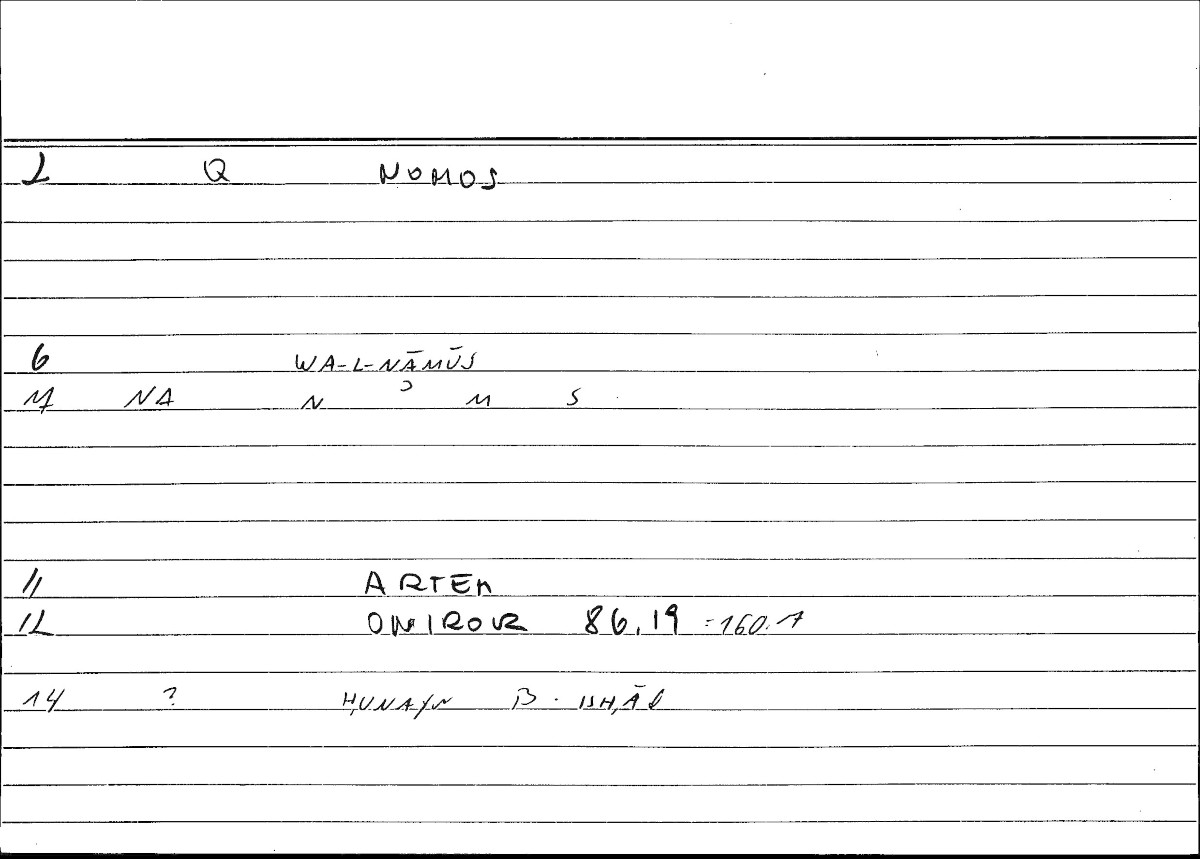 2 Q NOMOS
6 WA-L-NĀMŪS
7 NA N ʾ M S
11 ARTEM
12 ONIROCR 86.19 =160.7
14 ? ḤUNAYN B. ISḤĀQ